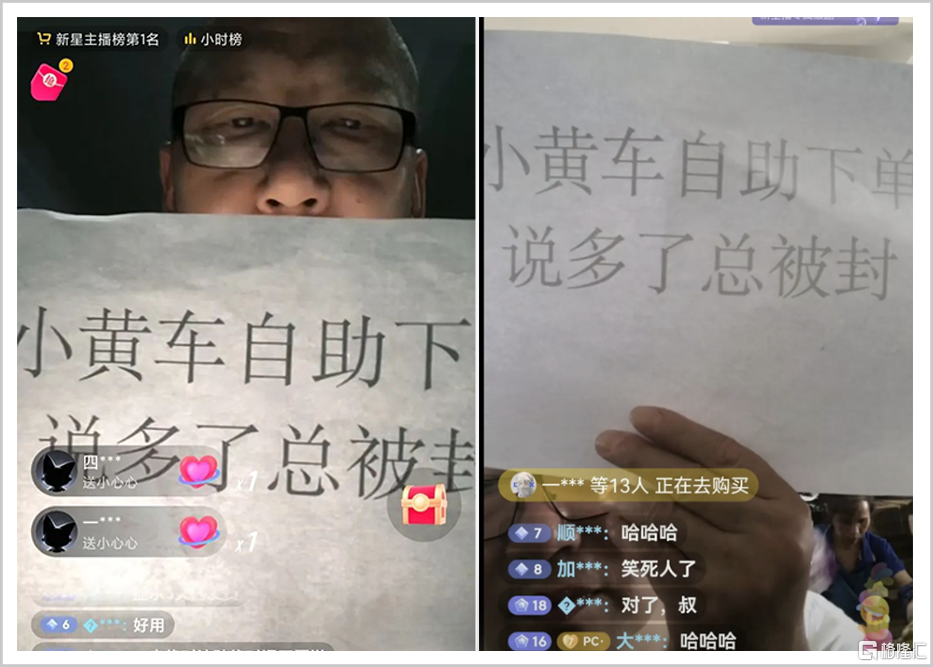 新星主播榜第1名
小时榜
2
小黄车自助下
说多了总被封
四***
送小心心
x1
一***
送小心心
x1
6
?***：好用
小黄车自助下单
说多了总被封
一*** 等13人 正在去购买
7 顺***：哈哈哈
8 加***：笑死人了
18 ?***：对了，叔
16 7 PC· 大***：哈哈哈
格隆汇